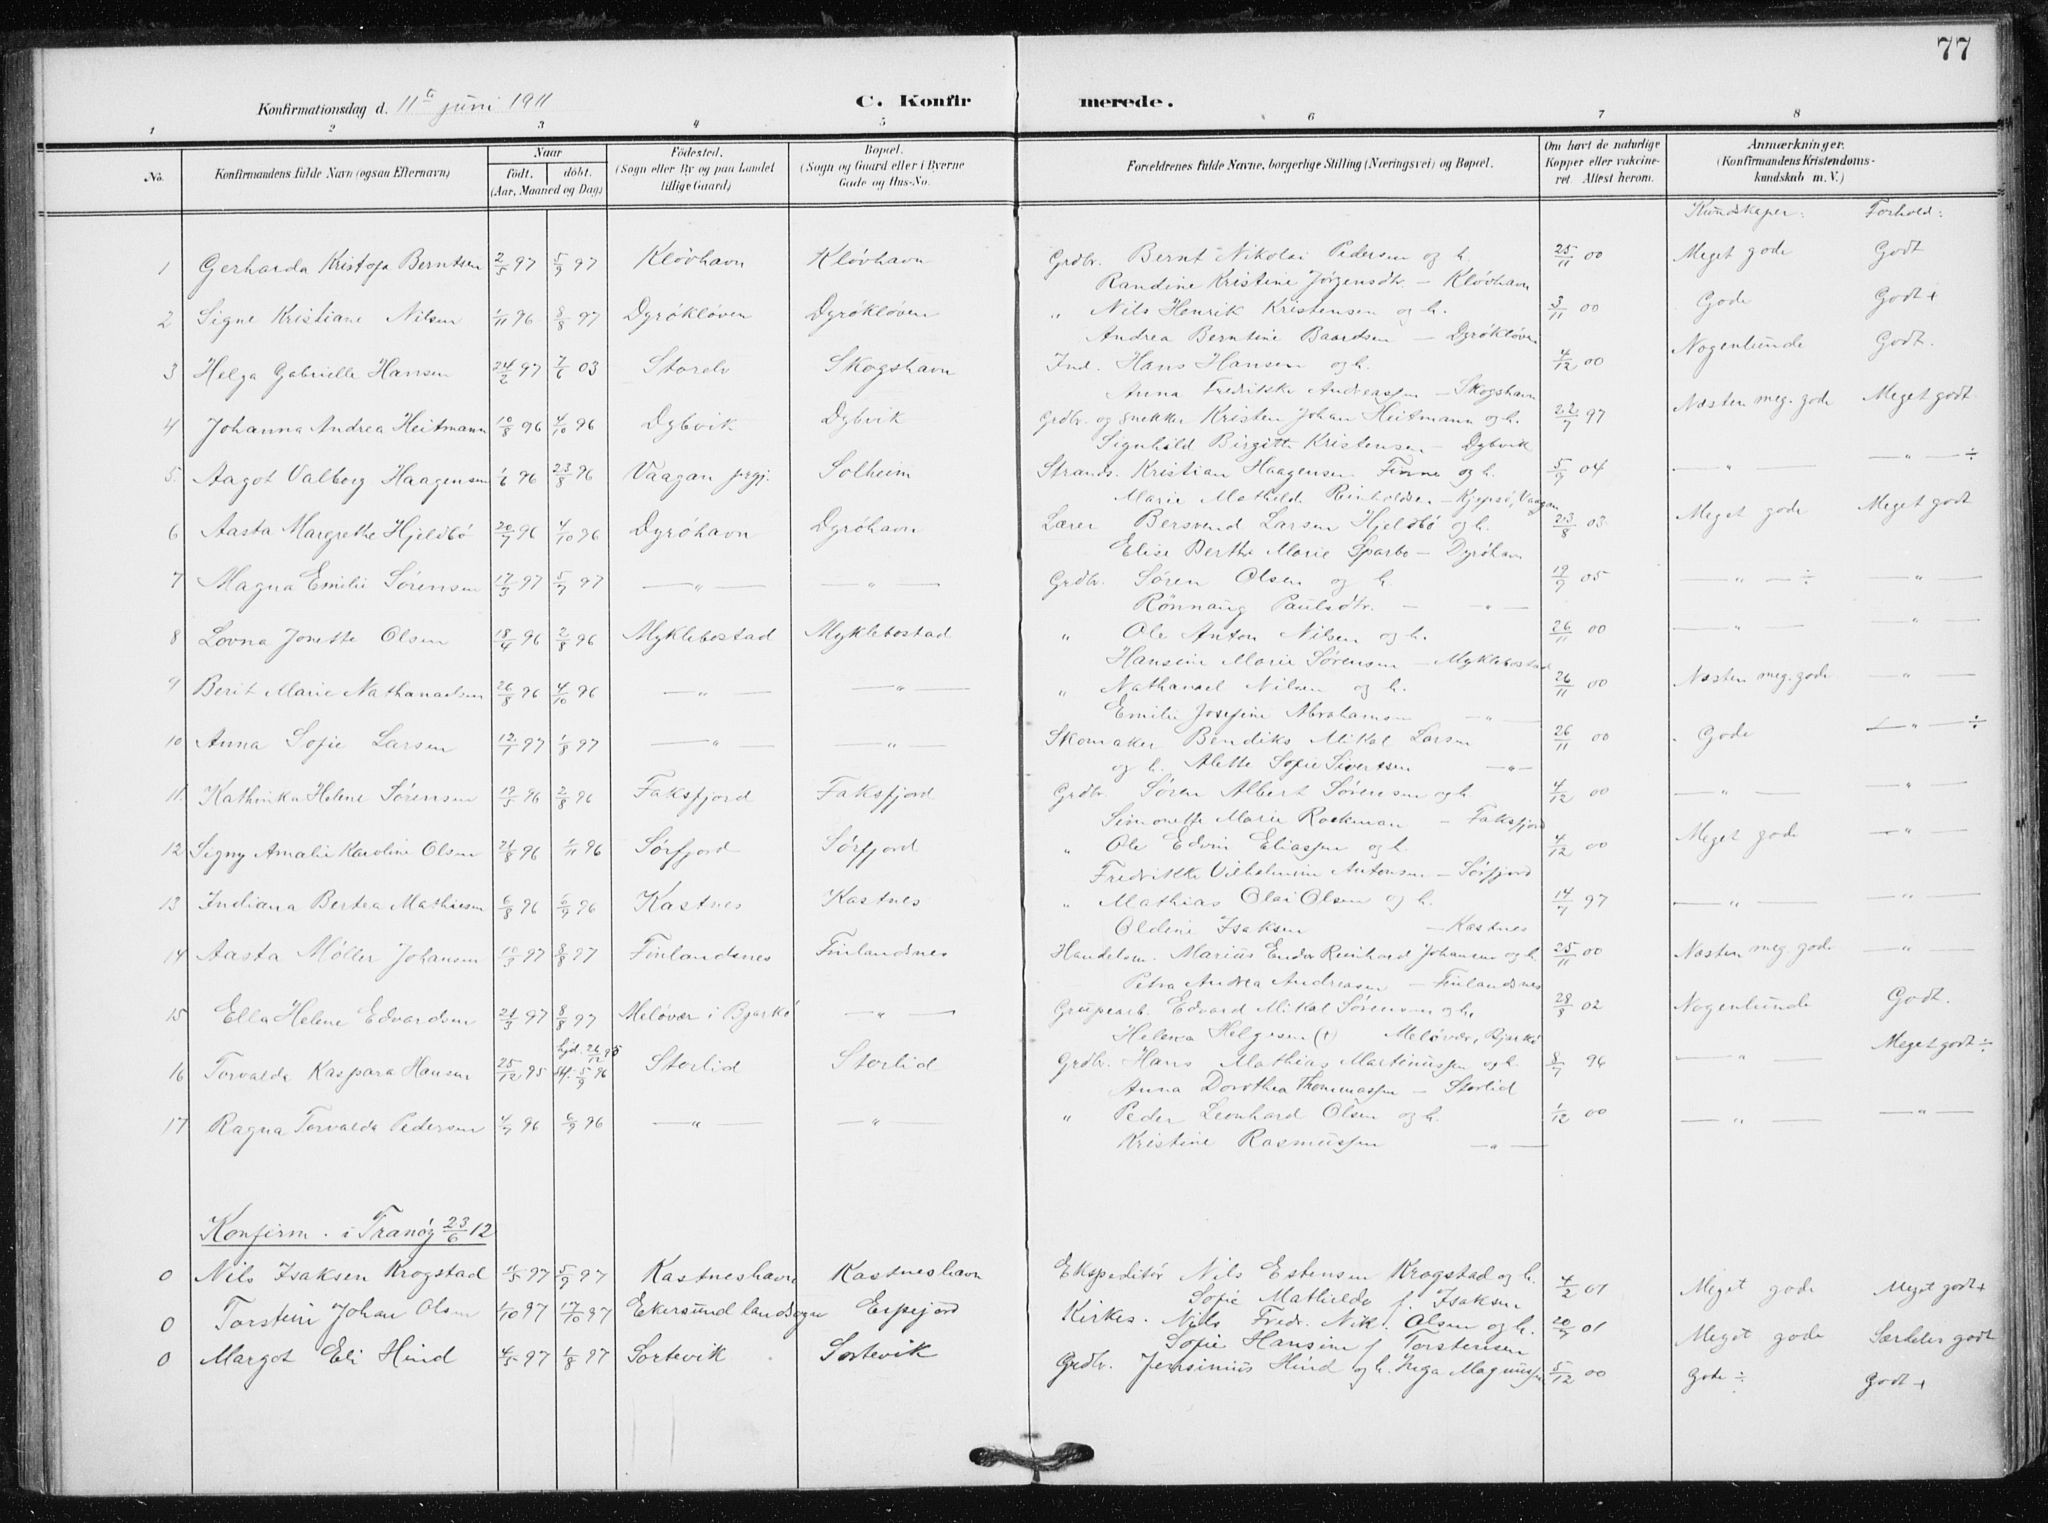 77
Konfirmationsdag d. 11te juni 1911 C. Konfirmerede.
1 2 3 4 5 6 7 8
No. Konfirmandens fulde Navn (ogsaa Efternavn) Naar født. døbt. (Aar, Maaned og Dag) Fødested. (Sogn eller By og paa Landet tillige Gaard) Bopæl. (Sogn og Gaard eller i Byerne Gade og Hus-No. Forældrenes fulde Navne, borgerlige Stilling (Næringsvei) og Bopæl. Om havt de naturlige Kopper eller vakcineret. Attest herom. Anmærkninger. (Konfirmandens Kristendomskundskab m. V.)
Kundskaper: Forhold:
1 Gerharda Kristofa Berntsen 2/5 97 5/9 97 Kløvhavn Kløvhavn Grdbr. Bernt Nikolai Pedersen og h. 25/11 00 Meget gode Godt
Randine Kristine Jørgensdtr. — Kløvhavn
2 Signe Kristiane Nilsen 1/11 96 8/8 97 Dyrøkløven Dyrøkløven " Nils Henrik Kristensen og h. 3/11 00 Gode Godt +
Andrea Berntine Baardsen — Dyrøkløven
3 Helga Gabrielle Hansen 24/2 97 7/6 03 Storelv Skogshavn Ind. Hans Hansen og h. 4/12 00 Nogenlunde Godt.
Anna Fredrikke Andreassen — Skogshavn
4 Johanna Andrea Heitmann 10/8 96 4/10 96 Dybvik Dybvik Grdbr. og snekker Kristen Johan Heitmann og h. 22/7 97 Næsten meg. gode Meget godt
Signhild Birgitte Kristensen — Dybvik
5. Aagot Valborg Haagensen 1/6 96 23/8 96 Vaagan prgj. Solheim Strands. Kristian Haagensen Finne og h. 5/9 04 — " — — " — ÷
Marie Mathilde Reinholdsen — Kjepsø, Vaagan
6 Aasta Margrethe Hjeldbø 20/7 96 4/10 96 Dyrøhavn Dyrøhavn Lærer Bersvend Larsen Hjeldbø og h. 23/8 03 Meget gode Meget godt
Elise Berthe Marie Sparbo — Dyrøhavn
7 Magna Emilie Sørensen 17/3 97 5/7 97 — " — — " — Grdbr. Søren Olsen og h. 19/9 05 — " — ÷ — " —
Rønnaug Paulsdtr. — — " —
8 Lovna Jonette Olsen 18/4 96 2/8 96 Myklebostad Myklebostad " Ole Anton Nilsen og h. 26/11 00 — " — — " —
Hansine Marie Sørensen — Myklebostad
9 Berit Marie Nathanaelsen 26/8 96 4/10 96 — " — — " — " Nathanael Nilsen og h. 26/11 00 Næsten meg. gode — " —
Emilie Josefine Abrahamsen — " —
10 Anna Sofie Larsen 12/1 97 1/8 97 — " — — " — Skomaker Bendiks Mikal Larsen 26/11 00 Gode — " — ÷
og h. Alette Sofie Sivertsen — " —
11. Kathinka Helene Sørensen 19/5 96 2/8 96 Faksfjord Faksfjord Grdbr. Søren Albert Sørensen og h. 4/12 00 — " — — " —
Simonette Marie Rackman — Faksfjord
12 Signy Amalie Karoline Olsen 21/8 96 1/11 96 Sørfjord Sørfjord " Ole Edvin Eliassen og h. 4/12 00 Meget gode — " —
Fredrikke Vilhelmine Antonsen — Sørfjord
13 Indiana Bertea Mathisen 6/8 96 6/9 96 Kastnes Kastnes " Mathias Olai Olsen og h. 14/7 97 — " — — " —
Oldine Isaksen — Kastnes
14 Aasta Møller Johansen 10/3 97 8/8 97 Finlandsnes Finlandsnes Handelsm. Marius Ender Reinhard Johansen og h. 25/11 00 Næsten meg. gode — " —
Petra Andrea Andreasen — Finlandsnes
15 Ella Helene Edvardsen 21/3 97 8/8 97 Meløvær i Bjarkø — " — Grupearb. Edvard Mikal Sørensen og h. 28/8 02 Nogenlunde Godt.
Helena Helgesen (+) Meløvær, Bjarkø
16 Torvalda Kaspara Hansen 25/12 95 hjd. 26/12 95 st. 5/9 96 Storlid Storlid Grdbr. Hans Mathias Martinussen og h. 8/7 96 — " — Meget godt ÷
Anna Dorothea Thommassen — Storlid
17 Ragna Torvalda Pedersen 4/7 96 6/9 96 — " — — " — " Peder Leonhard Olsen og h. 1/12 00 — " — — " —
Kristine Rasmussen — " —
Konfirm. i Tranøy 23/6 12
0 Nils Isaksen Krogstad 4/5 97 5/9 97 Kastneshavn Kastneshavn Ekspeditør Nils Estensen Krogstad og h. 4/2 01 Meget gode Meget godt +
Sofie Mathilde f. Isaksen
0 Torstein Johan Olsen 1/10 97 17/10 97 Ekersund landsogn Espejord Kirkes. Nils Fredr. Nik. Olsen og h. 20/7 01 Meget gode Særdeles godt
Sofie Hansine f Torstensen
0 Margot Eli Hind 4/5 97 1/8 97 Sortevik Sortevik Grdbr. Jensinius Hind og h. Inga Magnussen 5/12 00 Gode ÷ Godt +